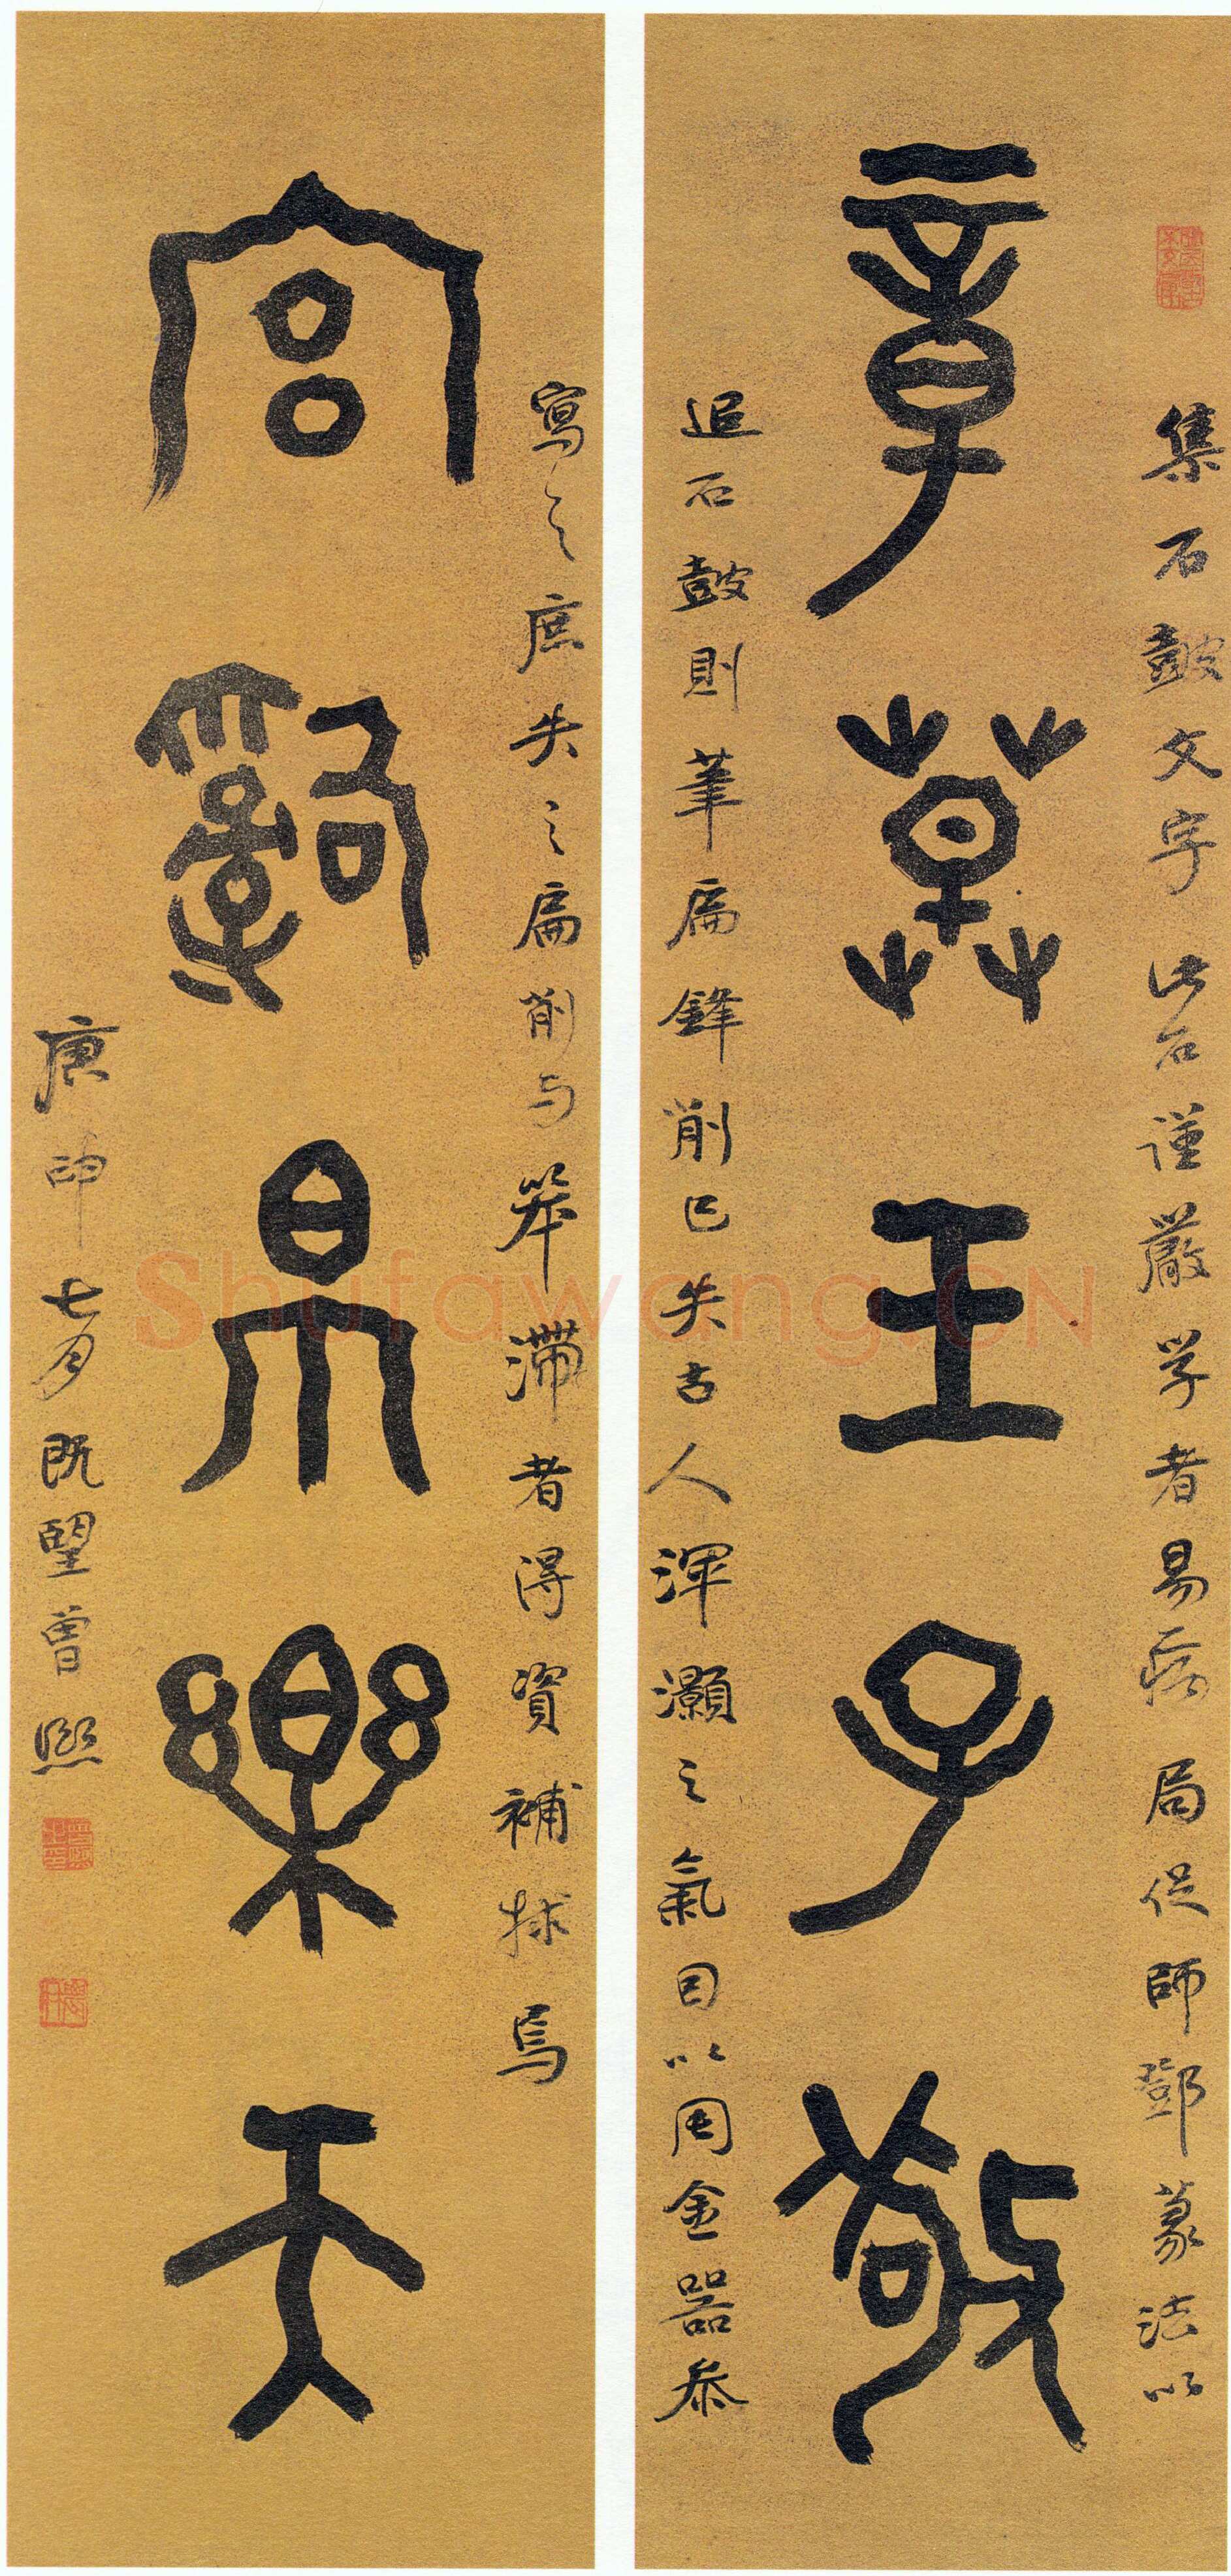 集石皷文字此石謹嚴学者易病局促師鄧篆法以
章草王子敬
追石皷則筆扁鋒削已失古人渾灝之氣因以周金器叅
寫之庶失之扁削与笨滯者得資補捄焉
宮辭帛樂天
庚申七月既望曾熙
Shufawang.CN